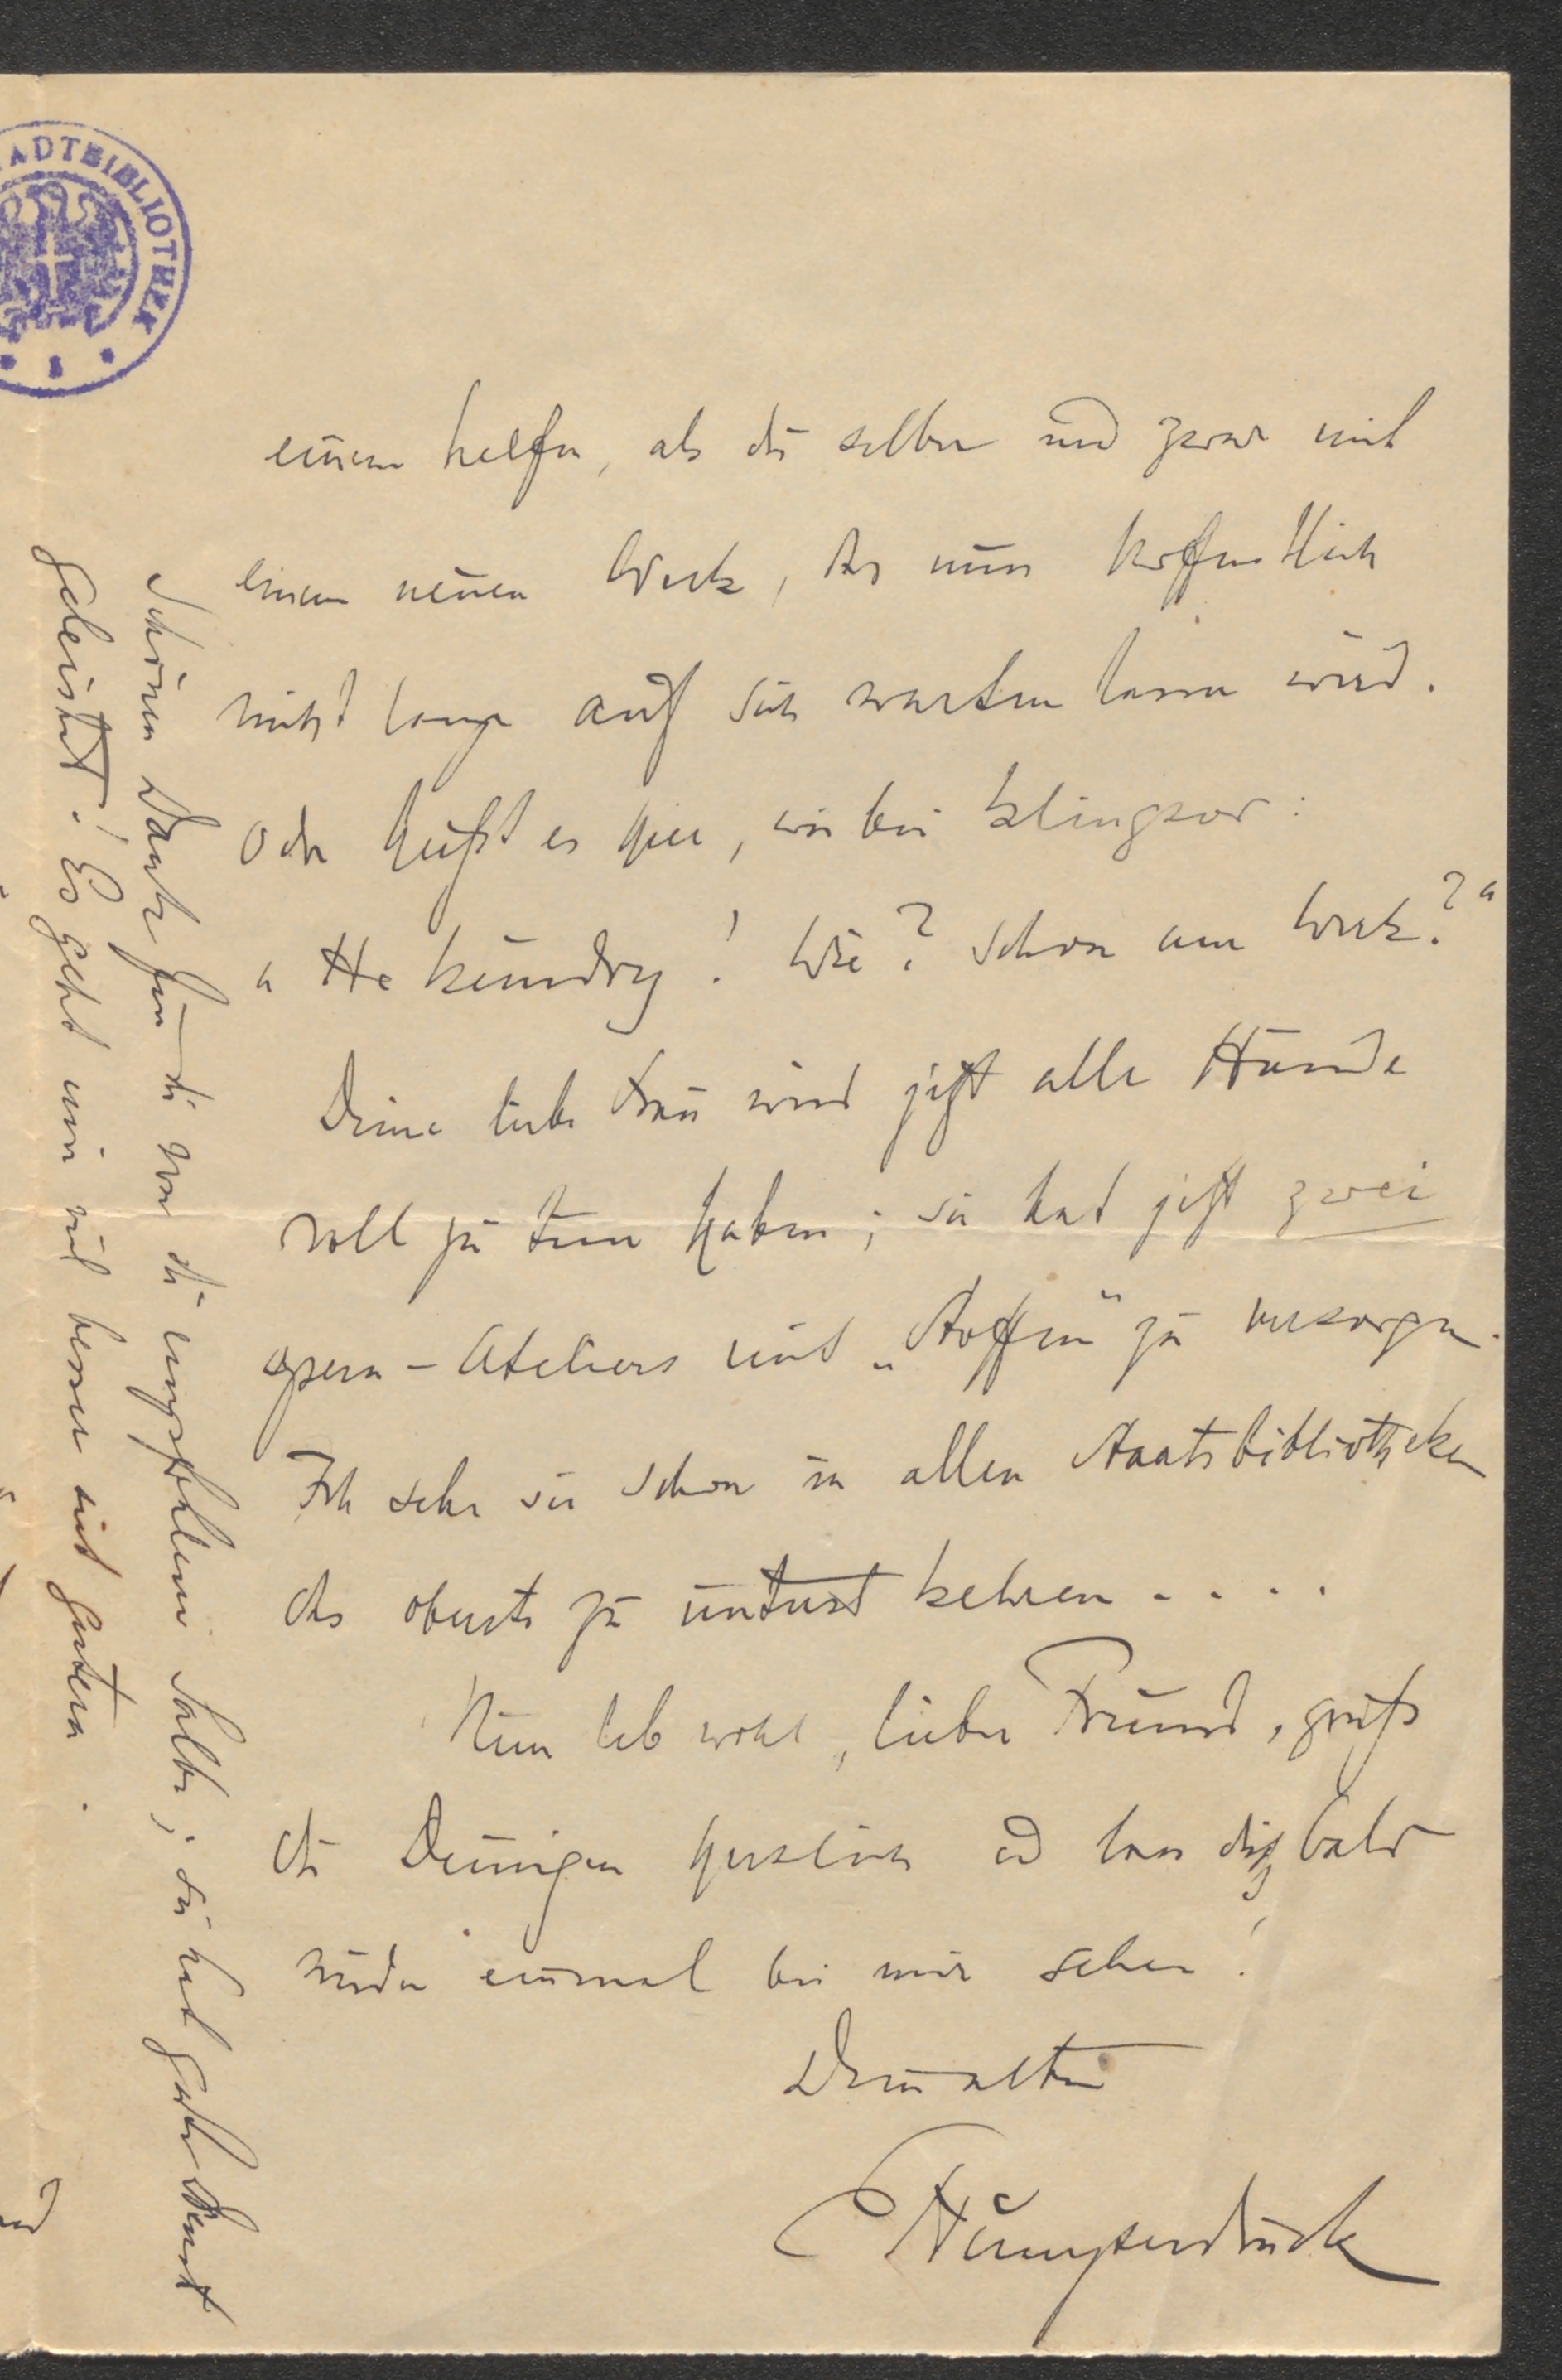 ADTBIBLIOTHEK
einem helfen, als du selber und zwar mit
einem neuen Werk, das nun hoffentlich
nicht lange auf sich warten lassen wird.
Oder heißt es hier, wie bei Klingsor:
"He Kundry! Wie? Schon am Werk?"
Deine liebe Frau wird jetzt alle Hände
voll zu tun haben; sie hat jetzt zwei
Opern-Ateliers mit „Stoffen" zu versorgen.
Ich sehe sie schon in allen Staatsbibliotheken
das oberste zu unterst kehren....
Nun leb wohl, lieber Freund, grüß
die Deinigen herzlich und lass dich bald
wieder einmal bei mir sehen!
Dein alter
E Humperdinck
Schönen Dank für die von dir empfohlene Salbe; sie hat gute Dienste
geleistet! Es geht mir viel besser seit gestern.